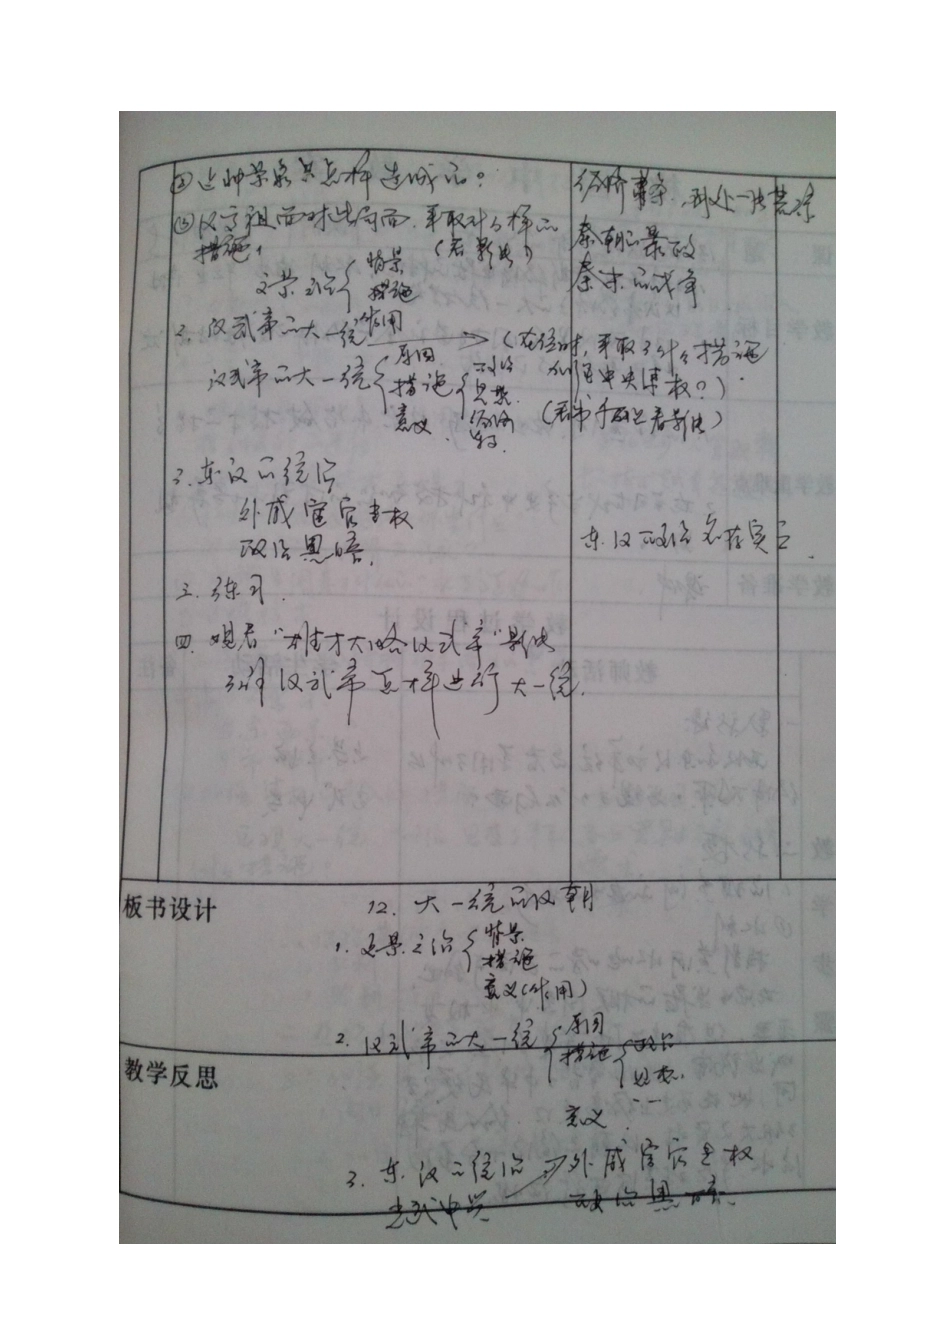 ②这种景象是怎样造成的?
③汉高祖面对此局面,采取什么样的
措施? (看影片)
文景之治 情景
措施
作用
2、汉武帝的大一统 (在位时,采取了什么措施
加强中央集权?)
汉武帝的大一统 原因
措施 政治
思想
经济
军事
意义
(看书 然后看影片)
3、东汉的统治
外戚宦官专权
政治黑暗.
三、练习.
四、观看"雄才大略汉武帝"影片
了解汉武帝怎样进行大一统.
经济萧条,到处一片荒凉
秦朝的暴政
秦末的战争
东汉政治名存实亡.
板书设计
12. 大一统的汉朝
1. 文景之治 情景
措施
意义(作用)
2. 汉武帝的大一统 原因
措施 政治
思想.
意义.
教学反思
3. 东汉的统治 外戚宦官专权
光武中兴 政治黑暗